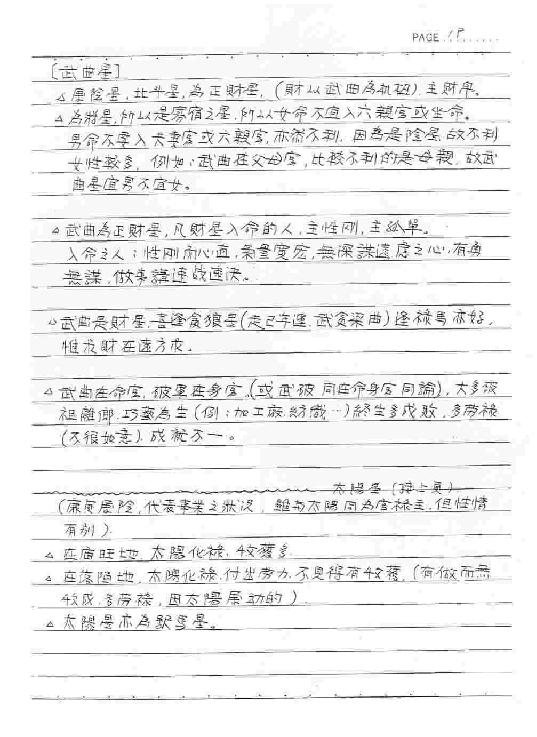 PAGE 18
[武曲星]
△屬陰星,北斗星,為正財星,(財以武曲為机梱)主財庫。
△為將星,所以是寡宿之星,所以女命不宜入六親宮或坐命。
男命不零入夫妻宮或六親宮,亦称不利.因為是陰星,故不利
女性較多.例如:武曲在父母宮,比較不利的是母親,故武
曲星宜男不宜女。
△武曲為正財星,凡財星入命的人,主性剛,主孤單。
入命之人:性剛而心直,氣量寬宏,無深謀遠慮之心,有勇
無謀,做事講速戰速決。
△武曲是財星,喜逢貪狼星(走己辛運.武貪梁曲)逢祿馬亦好,
惟求財在遠方求。
△武曲在命宮,破軍在身宮.(或武破同在命身宮同論),大多破
祖離鄉,巧藝為生(例:加工廠.紡織…)終生多成敗,多勞祿
(不很如意).成就不一。
太陽星(接上頁)
(廉貞屬陰,代表事業之狀況,雖与太陽同為官祿主,但性情
有別).
△在廟旺地,太陽化祿.收穫多.
△在落陷地,太陽化祿.付出勞力.不見得有收穫,(有做而無
收成.多勞祿,因太陽屬動的)
△太陽星亦為驛馬星。